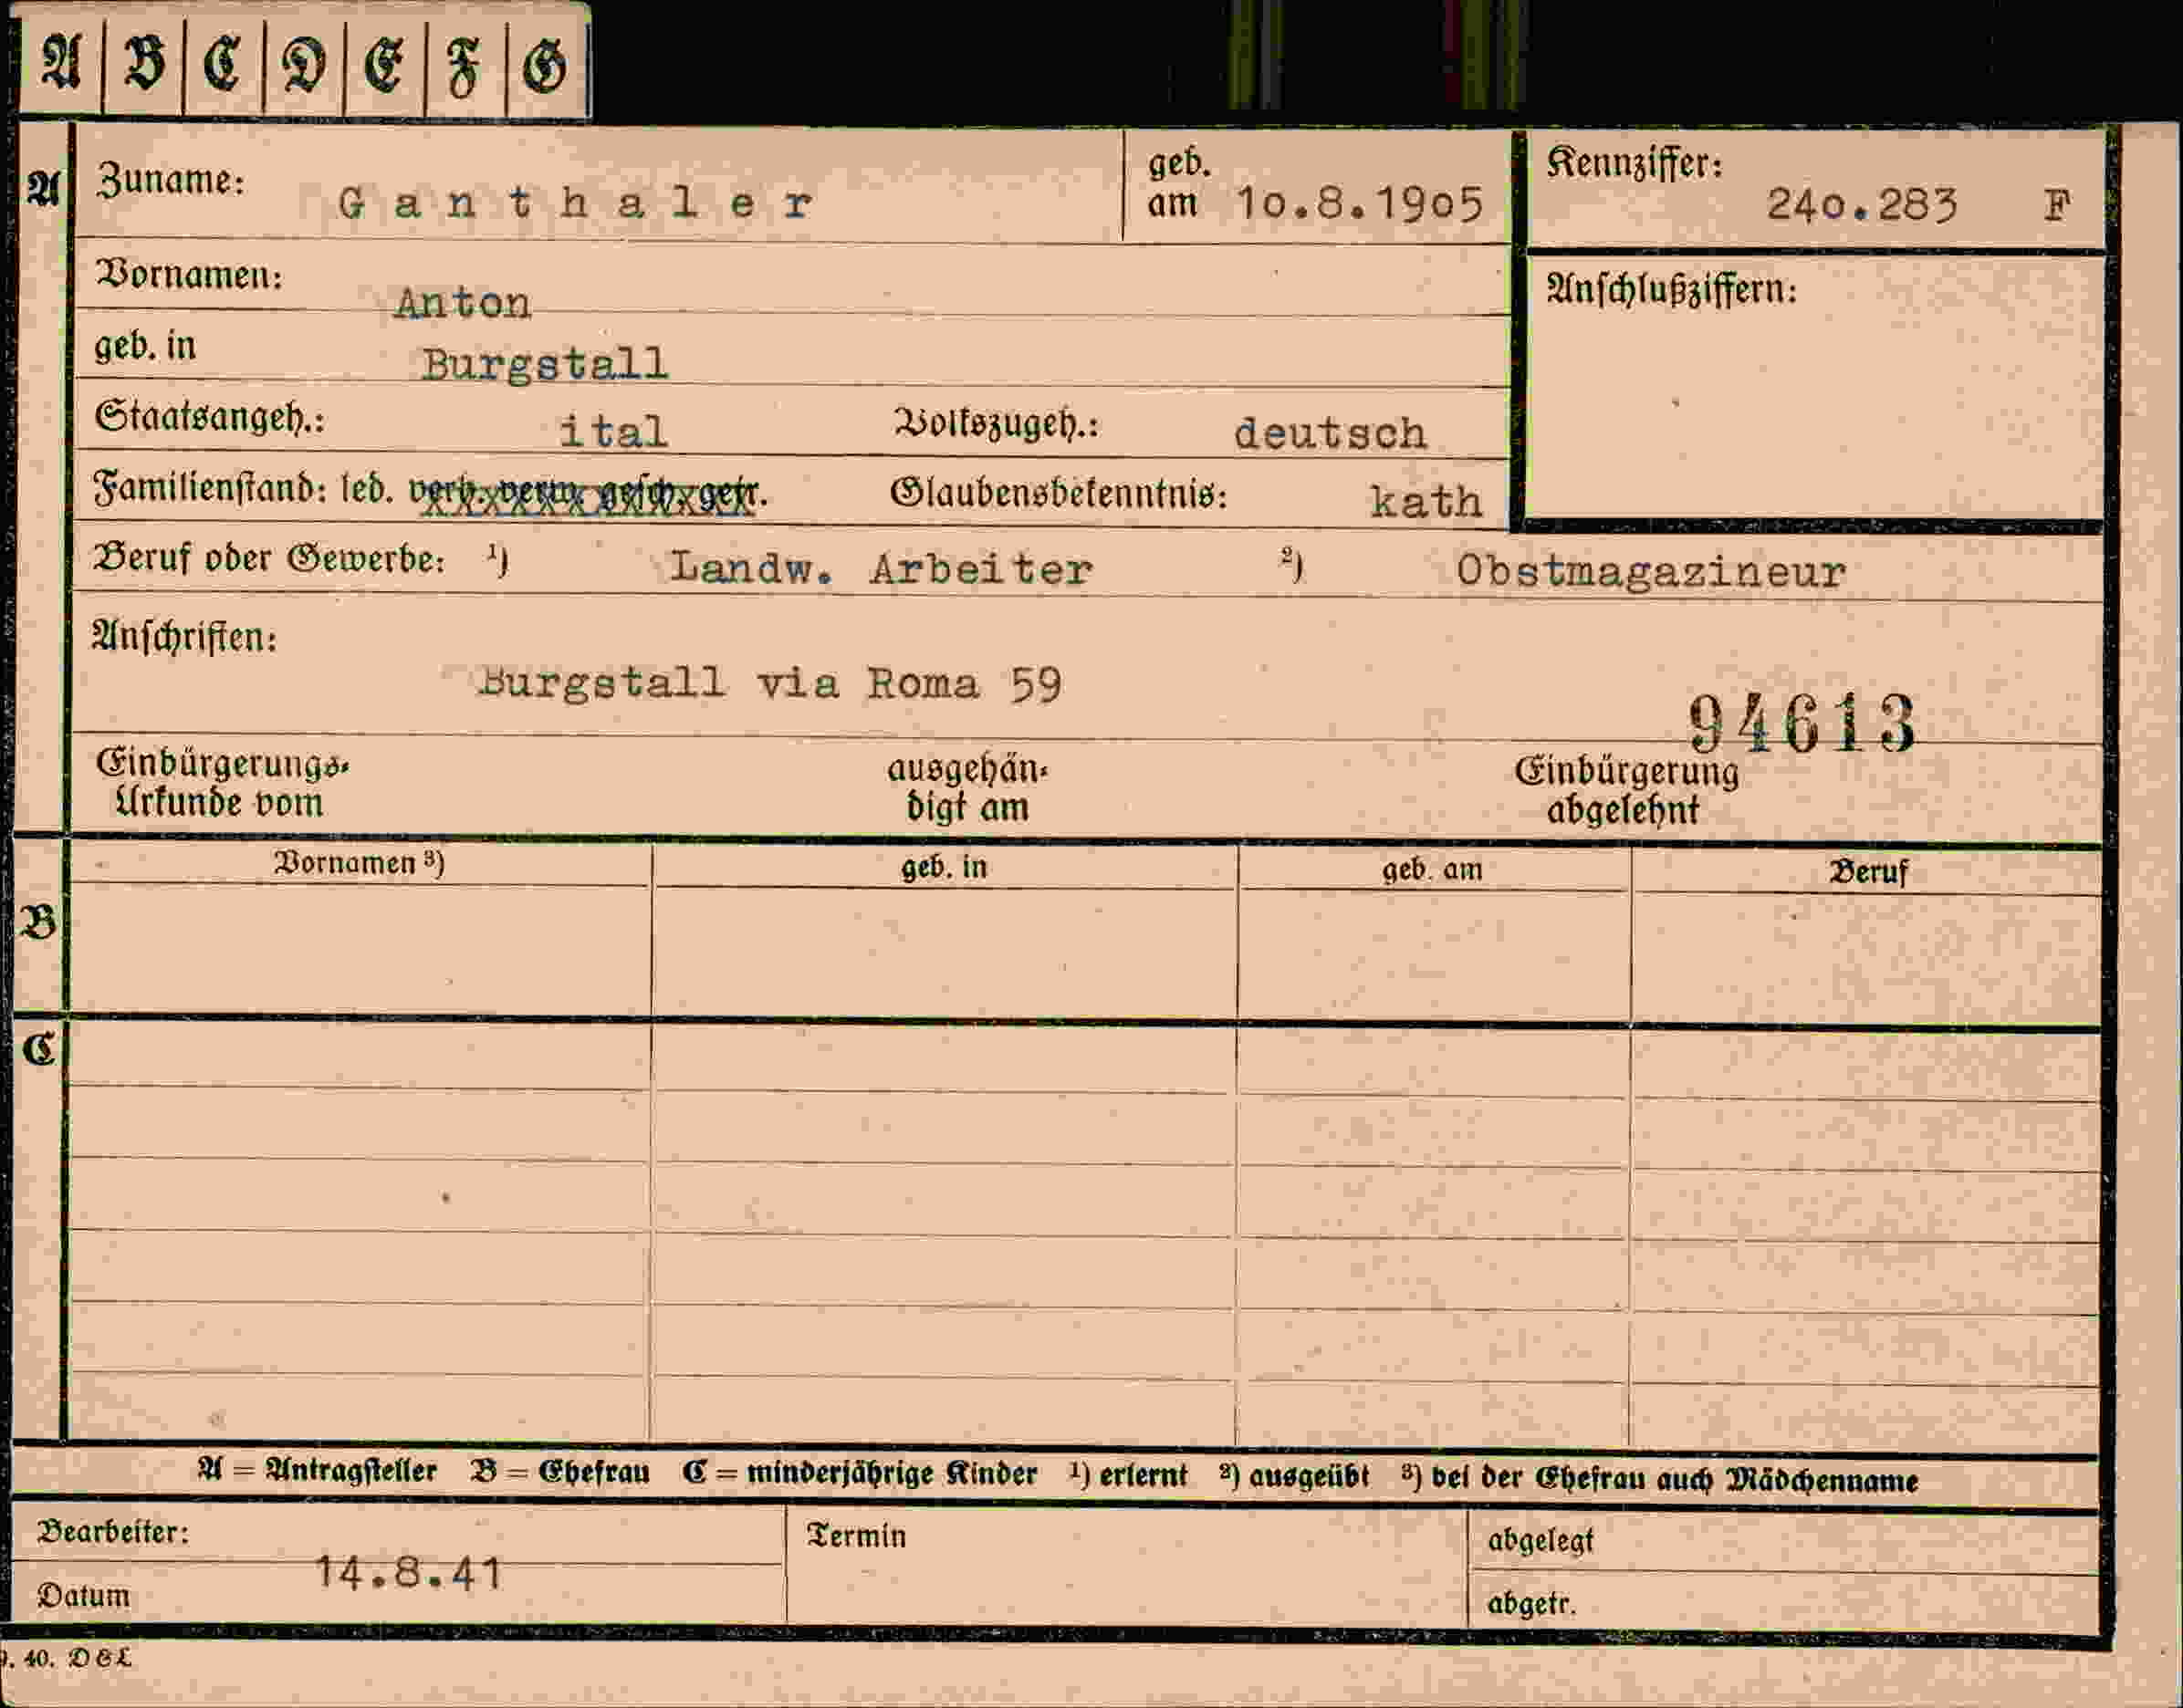 A B C D E F G
A Zuname: Ganthaler geb. am 10.8.1905 Kennziffer: 240.283 F
Vornamen: Anton Anschlußziffern:
geb. in Burgstall
Staatsangeh.: ital Volkszugeh.: deutsch
Familienstand: led. verh. verw. gesch. getr. Glaubensbekenntnis: kath
Beruf oder Gewerbe: ¹) Landw. Arbeiter ²) Obstmagazineur
Anschriften:
Burgstall via Roma 59
94613
Einbürgerungs-Urkunde vom ausgehändigt am Einbürgerung abgelehnt
Vornamen ³) geb. in geb. am Beruf
B
C
A = Antragsteller B = Ehefrau C = minderjährige Kinder ¹) erlernt ²) ausgeübt ³) bei der Ehefrau auch Mädchenname
Bearbeiter: Termin abgelegt
14.8.41
Datum abgetr.
40. D&L